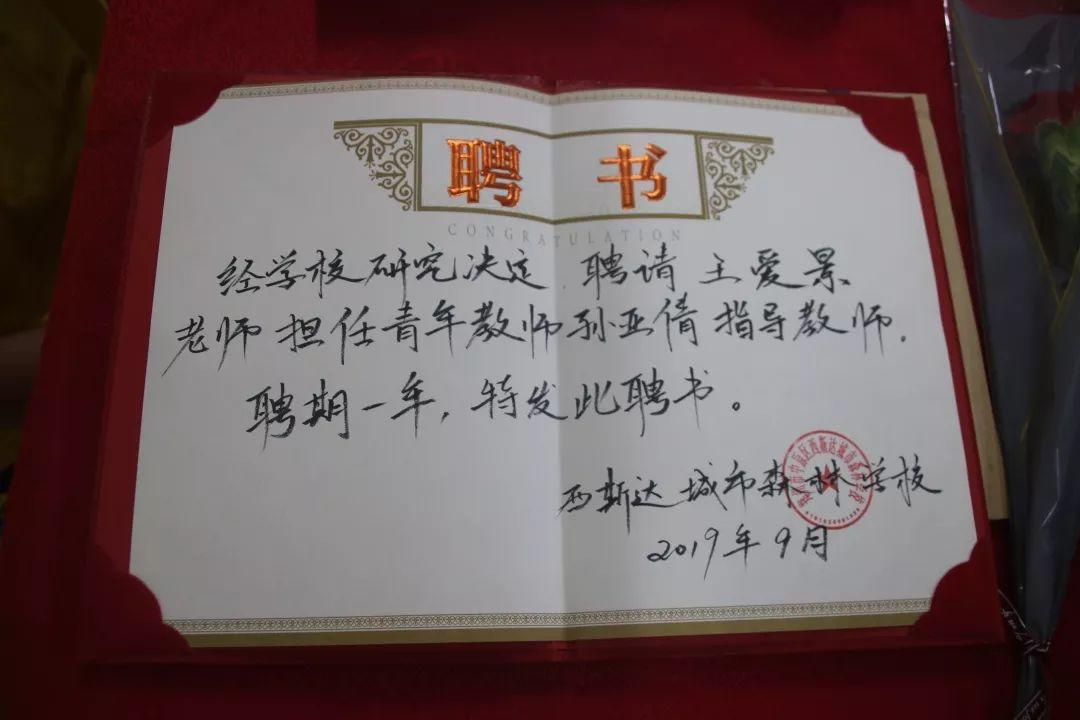 聘 书
CONGRATULATION
经学校研究决定 聘请 王爱景
老师 担任青年教师孙亚倩 指导教师.
聘期一年,特发此聘书。
西斯达城市森林学校
2019年9月